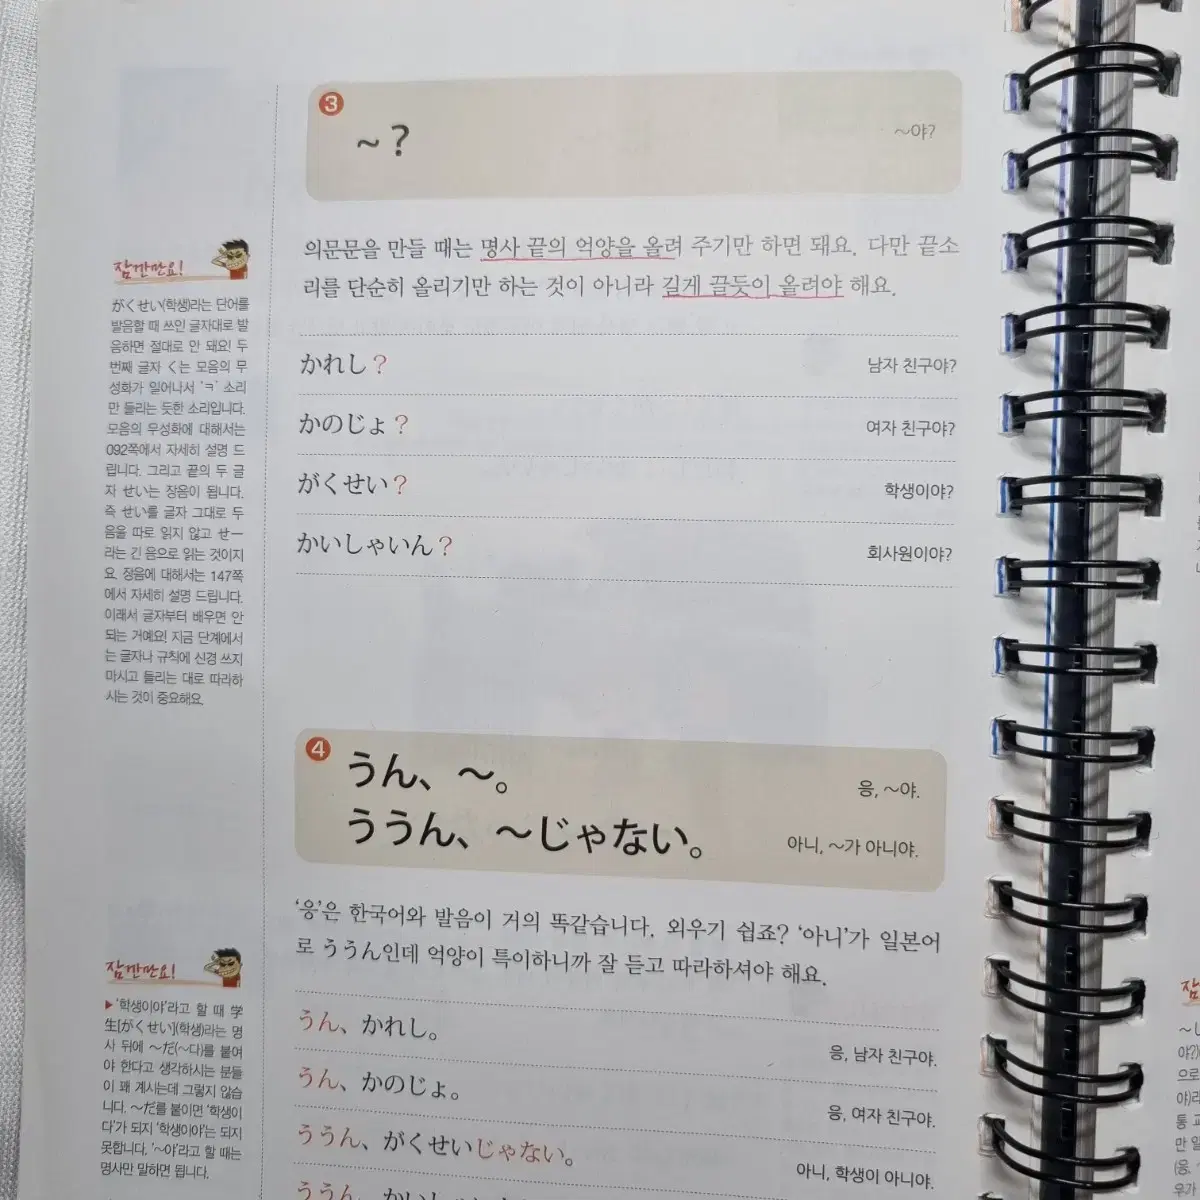 3
～？
～야?
의문문을 만들 때는 명사 끝의 억양을 올려 주기만 하면 돼요. 다만 끝소
리를 단순히 올리기만 하는 것이 아니라 길게 끌듯이 올려야 해요.
かれし？ 남자 친구야?
かのじょ？ 여자 친구야?
がくせい？ 학생이야?
かいしゃいん？ 회사원이야?
잠깐만요!
がくせい(학생)라는 단어를
발음할 때 쓰인 글자대로 발
음하면 절대로 안 돼요! 두
번째 글자 く는 모음의 무
성화가 일어나서 'ㅋ' 소리
만 들리는 듯한 소리입니다.
모음의 무성화에 대해서는
092쪽에서 자세히 설명 드
립니다. 그리고 끝의 두 글
자 せい는 장음이 됩니다.
즉 せい를 글자 그대로 두
음을 따로 읽지 않고 せー
라는 긴 음으로 읽는 것이지
요. 장음에 대해서는 147쪽
에서 자세히 설명 드립니다.
이래서 글자부터 배우면 안
되는 거예요! 지금 단계에서
는 글자나 규칙에 신경 쓰지
마시고 들리는 대로 따라하
시는 것이 중요해요.
4
うん、～。 응, ～야.
ううん、～じゃない。 아니, ～가 아니야.
'응'은 한국어와 발음이 거의 똑같습니다. 외우기 쉽죠? '아니'가 일본어
로 ううん인데 억양이 특이하니까 잘 듣고 따라하셔야 해요.
うん、かれし。 응, 남자 친구야.
うん、かのじょ。 응, 여자 친구야.
ううん、がくせいじゃない。 아니, 학생이 아니야.
ううん、かいしゃ
잠깐만요!
▶'학생이야'라고 할 때 学
生[がくせい](학생)라는 명
사 뒤에 ～だ(～다)를 붙여
야 한다고 생각하시는 분들
이 꽤 계시는데 그렇지 않습
니다. ～だ를 붙이면 '학생이
다'가 되지 '학생이야'는 되지
못합니다. '～야'라고 할 때는
명사만 말하면 됩니다.